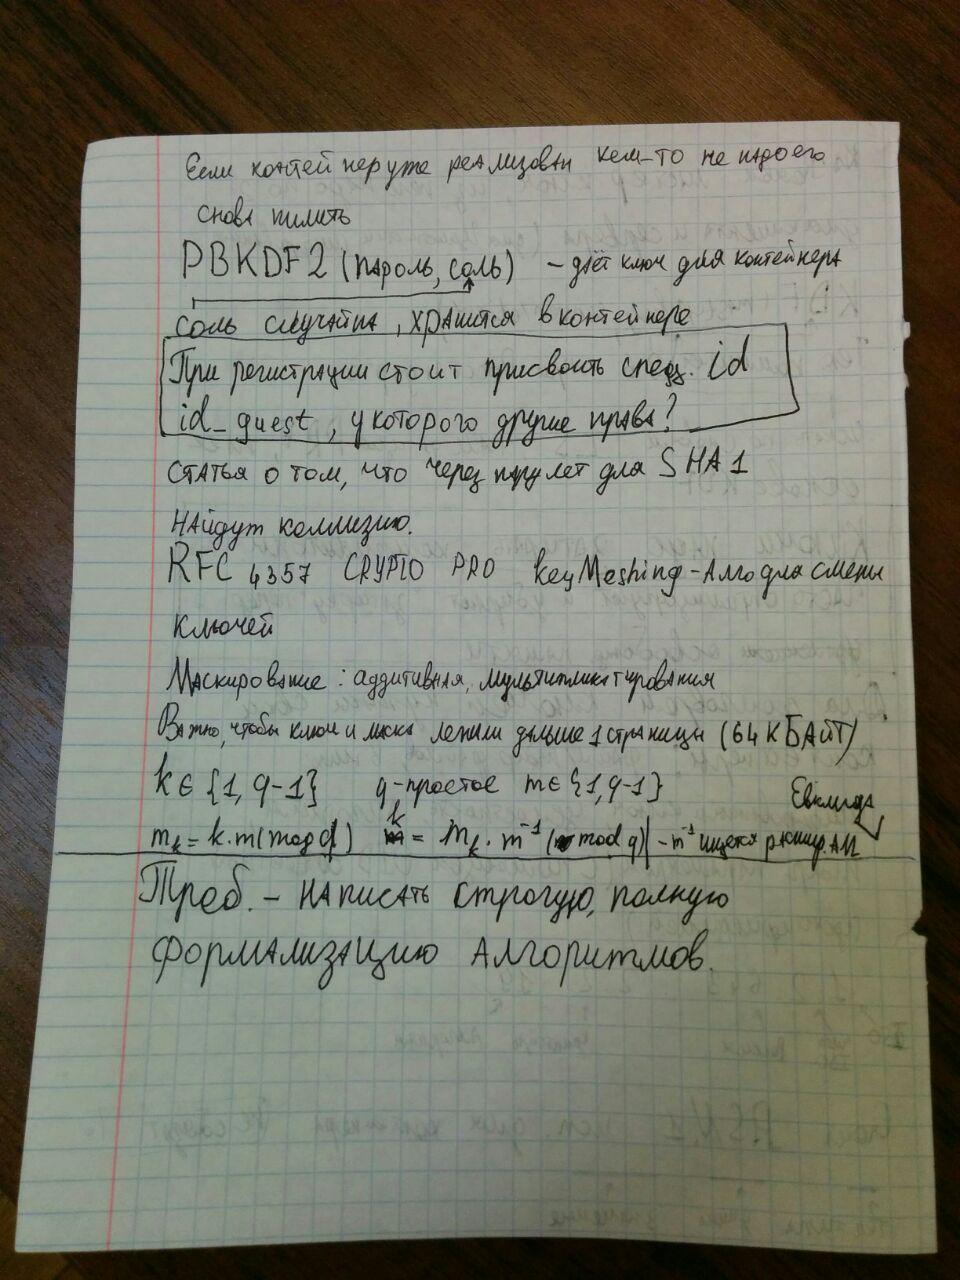 Если контейнер уже реализован кем-то не надо его
снова пилить
PBKDF2 (пароль, соль) - даёт ключ для контейнера
соль случайна, хранится в контейнере
При регистрации стоит присвоить спец. id
id_guest, у которого другие права?
статья о том, что через пару лет для SHA1
найдут коллизию.
RFC 4357 CRYPTO PRO key Meshing - Алго для смены
ключей
Маскирование: аддитивная, мультипликатирования
Важно, чтобы ключ и маска лежали дальше 1 страницы (64 КБАЙТ)
k ∈ {1, q-1} q-простое m ∈ {1, q-1}
Евклида
mₖ = k·m (mod q) k = mₖ·m⁻¹ (mod q) - m⁻¹ ищется расшир АЛ
Треб. - написать строгую, полную
формализацию алгоритмов.